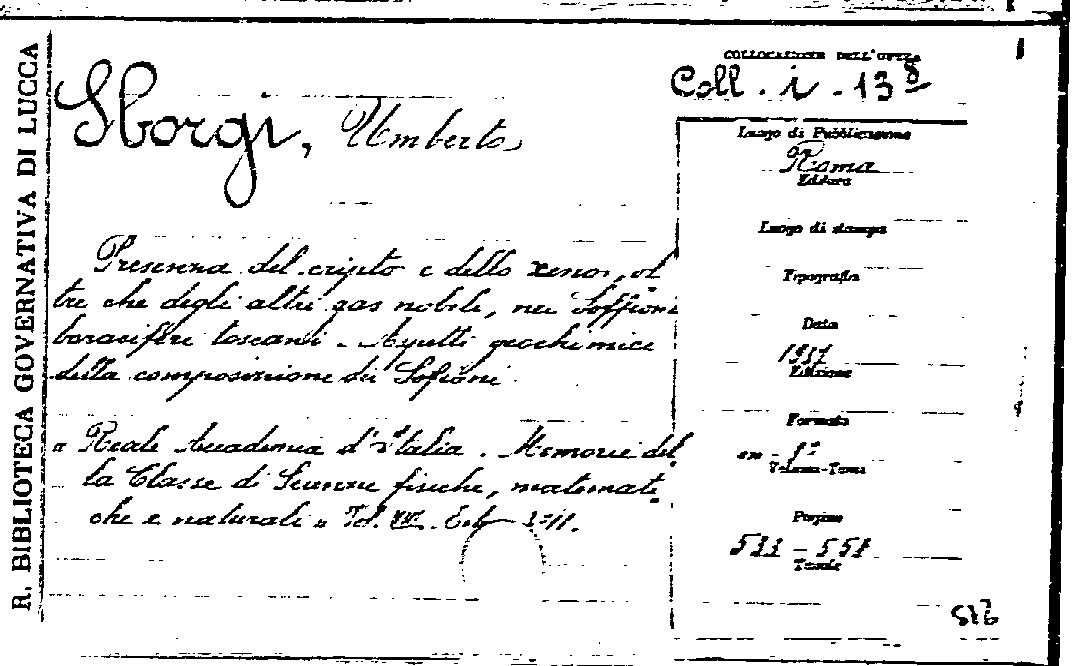 R. BIBLIOTECA GOVERNATIVA DI LUCCA
Sborgi, Umberto
Presenza del cripto e dello xenon, ol
tre che degli altri gas nobili, nei Soffioni
boraciferi toscani - Aspetti geochimici
della composizione dei Soffioni
« Reale Accademia d'Italia. Memorie del
la Classe di Scienze fisiche, matemati
che e naturali »
COLLOCAZIONE DELL'OPERA
Coll. i - 13 8
Luogo di Pubblicazione
Roma
Editore
Luogo di stampa
Tipografia
Data
1937
Edizione
Formato
in - 8°
Volume-Tomo
Pagine
Tavole